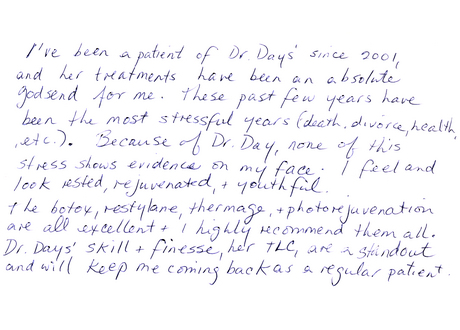 I've been a patient of Dr. Days' since 2001,
and her treatments have been an absolute
godsend for me. These past few years have
been the most stressful years (death, divorce, health
, etc.). Because of Dr. Day, none of this
stress shows evidence on my face. I feel and
look rested, rejuvenated, + youthful.
The botox, restylane, thermage, + photorejuvenation
are all excellent + I highly recommend them all.
Dr. Days' skill + finesse, her TLC, are a standout
and will keep me coming back as a regular patient.